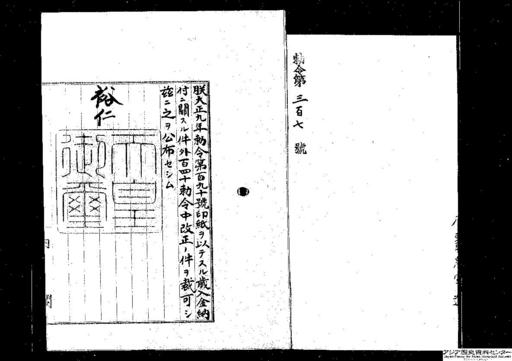 勅令第三百七號
朕大正九年勅令第百九十號印紙ヲ以テスル歳入金納
付ニ關スル件外百四十勅令中改正ノ件ヲ裁可シ
茲ニ之ヲ公布セシム
裕仁
天皇
御璽
内閣
アジア歴史資料センター